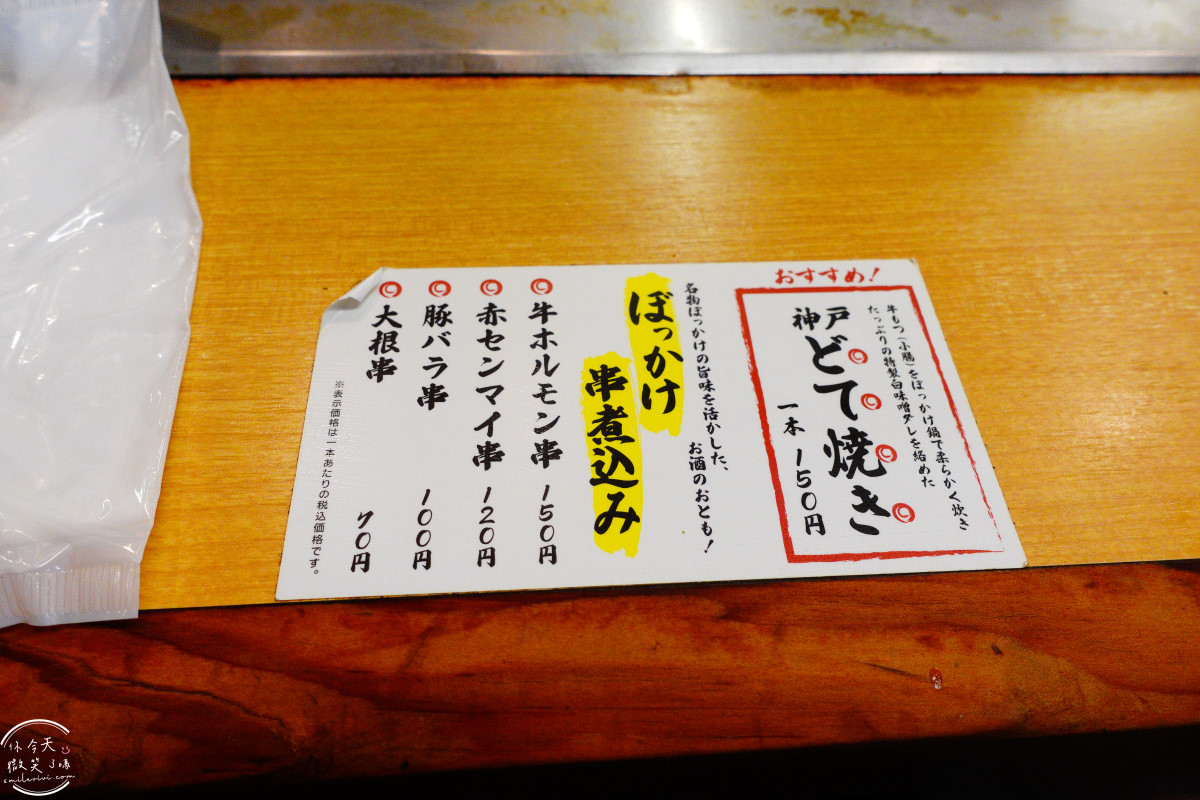 おすすめ！
牛もつ（小腸）をぼっかけ鍋で柔らかく炊き
たっぷりの特製白味噌ダレを絡めた
神戸
どて焼き
一本 150円
名物ぼっかけの旨味を活かした、
お酒のおとも！
ぼっかけ
串煮込み
牛ホルモン串 150円
赤センマイ串 120円
豚バラ串 100円
大根串 70円
※表示価格は一本あたりの税込価格です。
你今天
微笑了嗎
smilevivi.com